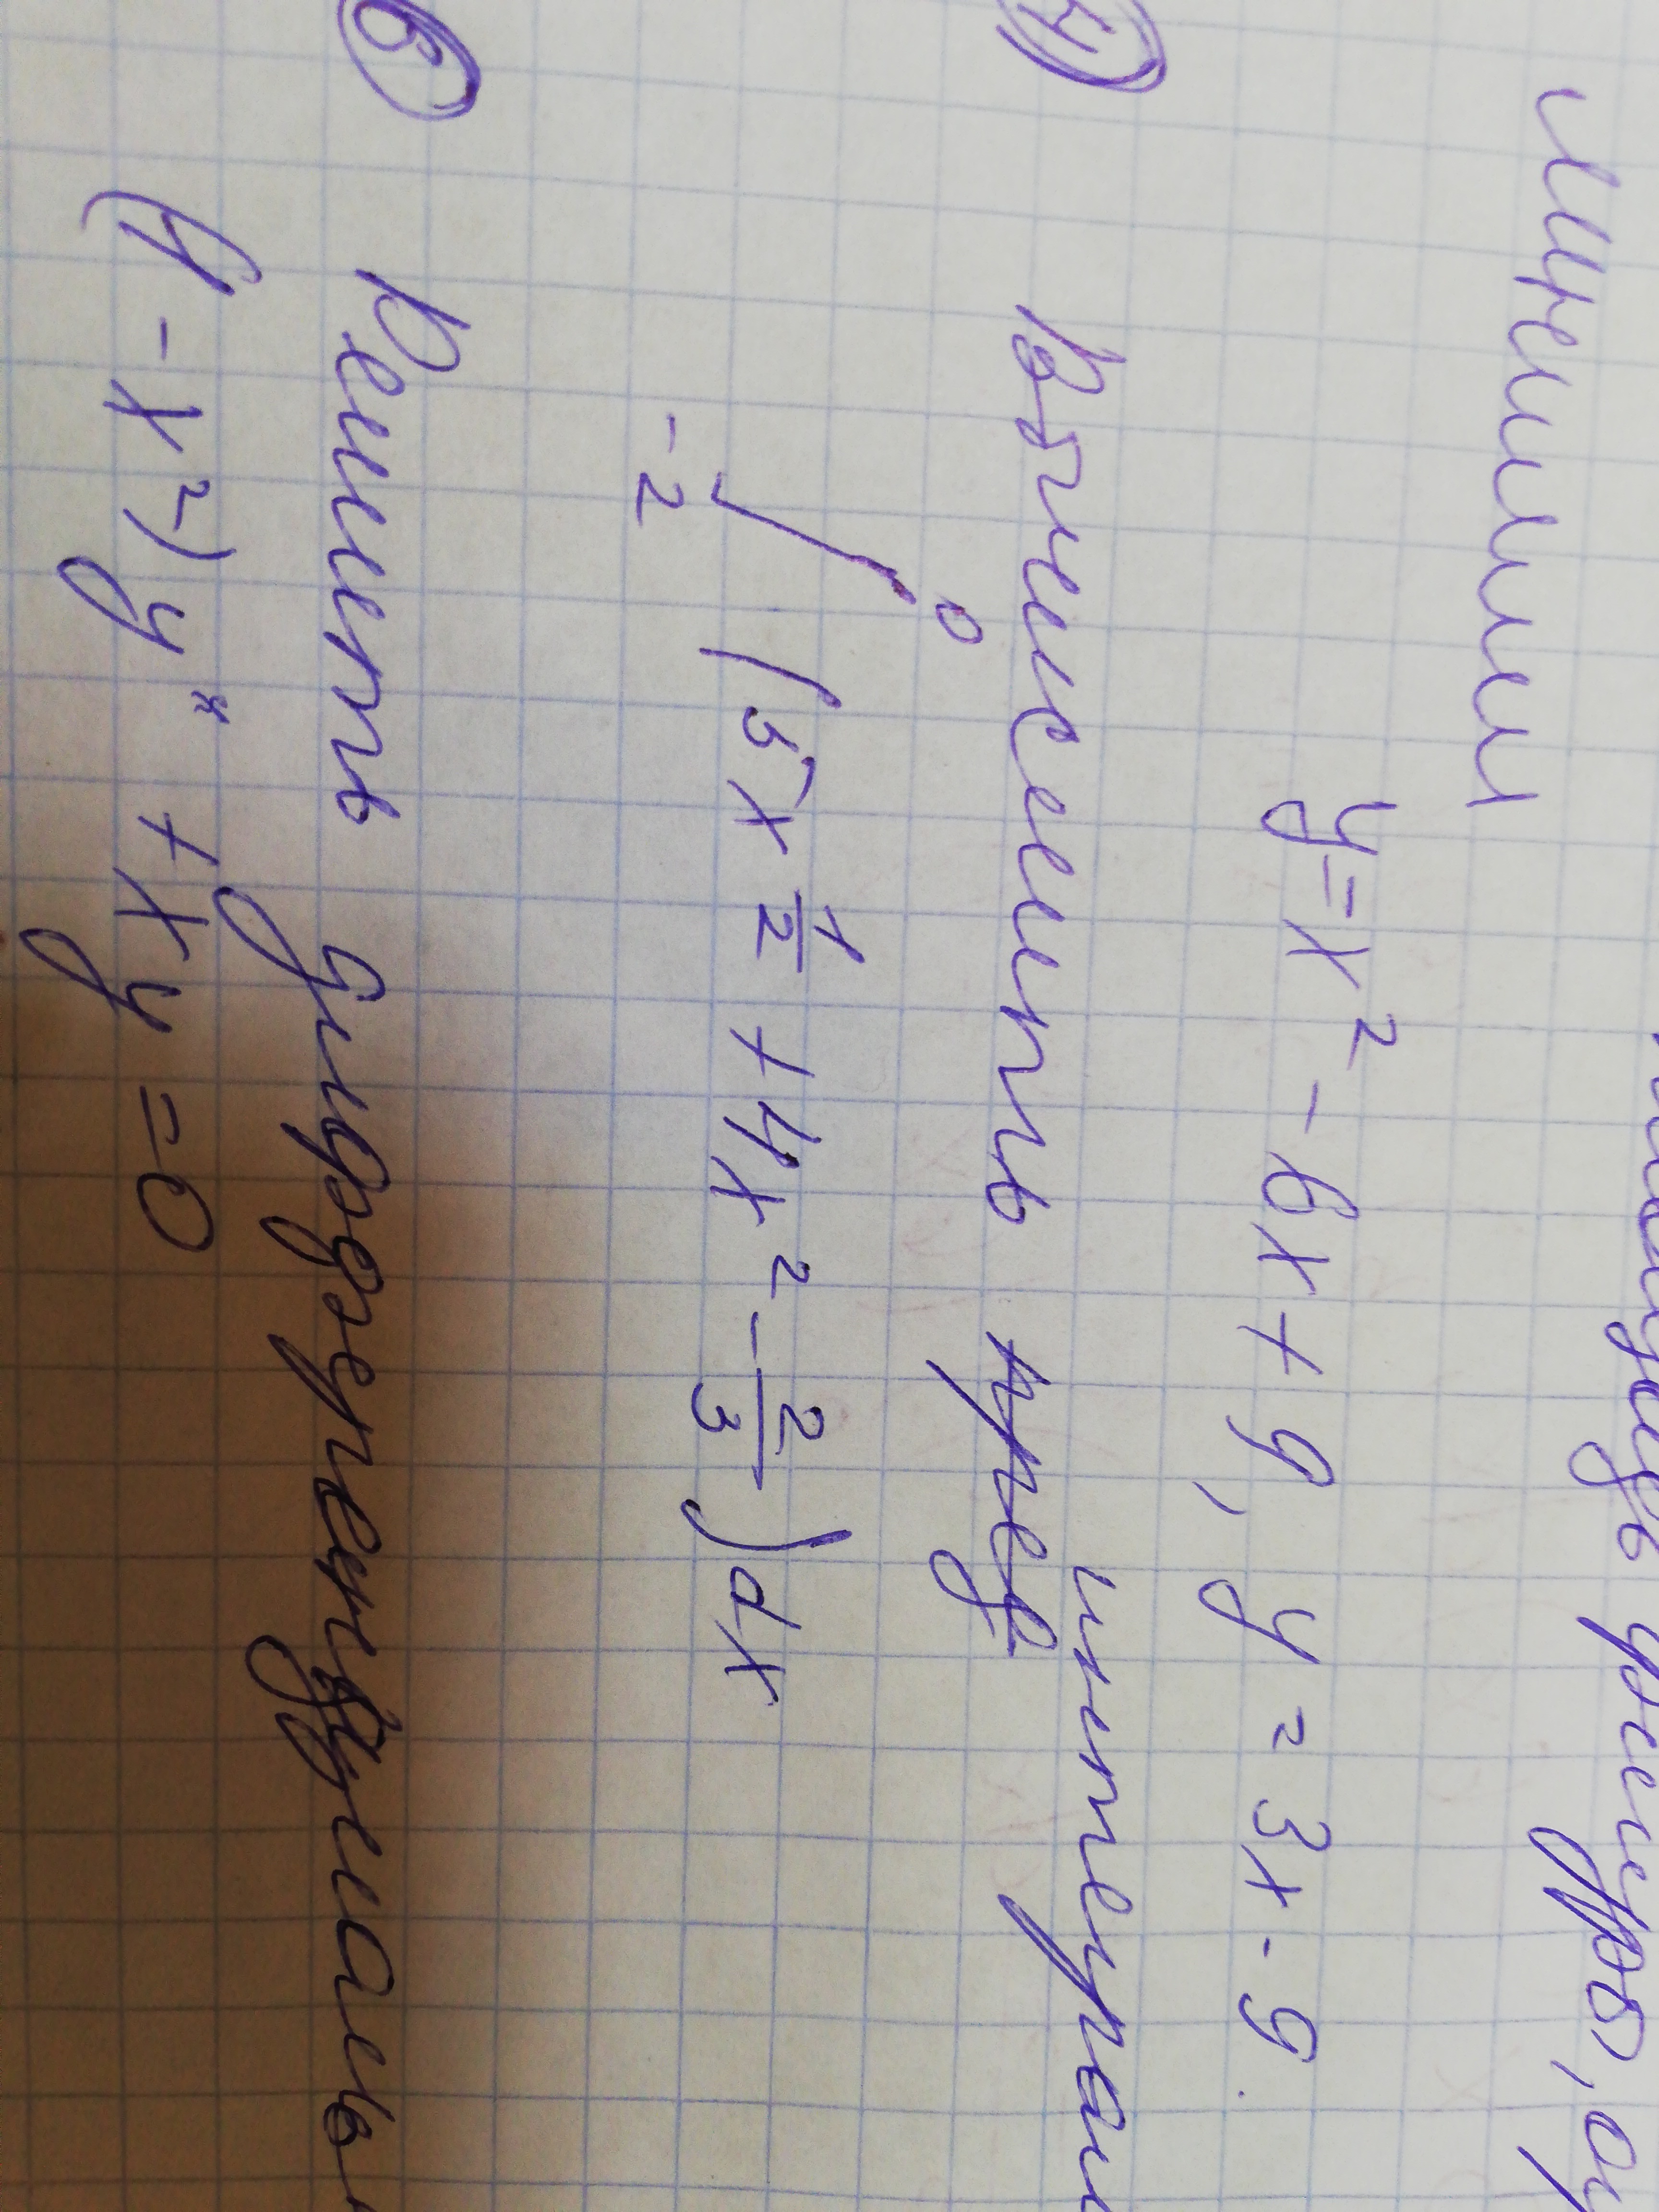 площадь фигуры,
линиями
y = x² - 6x + 9, y = 3x - 9.
④ Вычислить интеграл
∫₋₂⁰ (5x 1/2 + 4x² - 2/3) dx
⑥ Решить дифференциаль
(1 - x²) y" + xy = 0